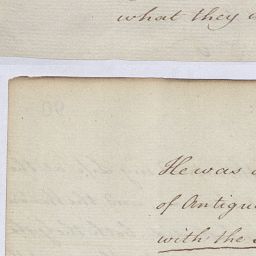 what they
He was
of Antiqu
with the